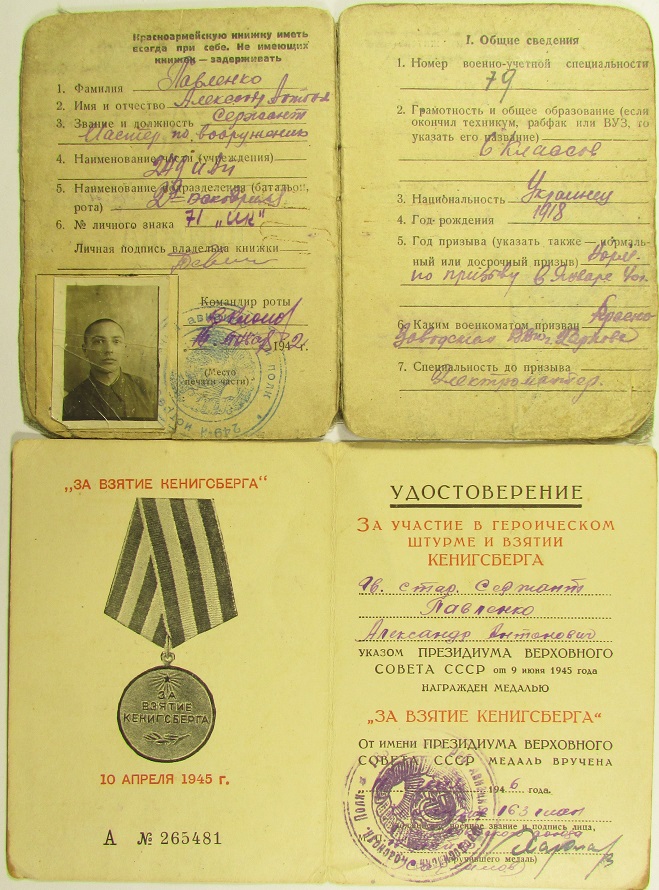 Красноармейскую книжку иметь
всегда при себе. Не имеющих
книжек — задерживать
1. Фамилия Павленко
2. Имя и отчество Александр Антон
3. Звание и должность Сержант
Мастер по вооружению
4. Наименование части (учреждения)
249 иап
5. Наименование подразделения (батальон,
рота) 2я эскадрилья
6. № личного знака 71 „ИК"
Личная подпись владельца книжки
Командир роты
194 2 г.
(Место
печати части)
I. Общие сведения
1. Номер военно-учетной специальности
79
2. Грамотность и общее образование (если
окончил техникум, рабфак или ВУЗ, то
указать его название)
6 классов
3. Национальность Украинец
4. Год рождения 1918
5. Год призыва (указать также — нормаль-
ный или досрочный призыв)
по призыву в Январе
6. Каким военкоматом призван Красно-
заводским РВК г. Харькова
7. Специальность до призыва
Электромонтер.
„ЗА ВЗЯТИЕ КЕНИГСБЕРГА"
ЗА
ВЗЯТИЕ
КЕНИГСБЕРГА
10 АПРЕЛЯ 1945 г.
А № 265481
УДОСТОВЕРЕНИЕ
ЗА УЧАСТИЕ В ГЕРОИЧЕСКОМ
ШТУРМЕ И ВЗЯТИИ
КЕНИГСБЕРГА
Гв. стар. Сержант
Павленко
Александр Антонович
УКАЗОМ ПРЕЗИДИУМА ВЕРХОВНОГО
СОВЕТА СССР от 9 июня 1945 года
НАГРАЖДЕН МЕДАЛЬЮ
„ЗА ВЗЯТИЕ КЕНИГСБЕРГА"
От имени ПРЕЗИДИУМА ВЕРХОВНОГО
СОВЕТА СССР МЕДАЛЬ ВРУЧЕНА
194 6 года.
163
воинское звание и подпись лица,
вручившего медаль)